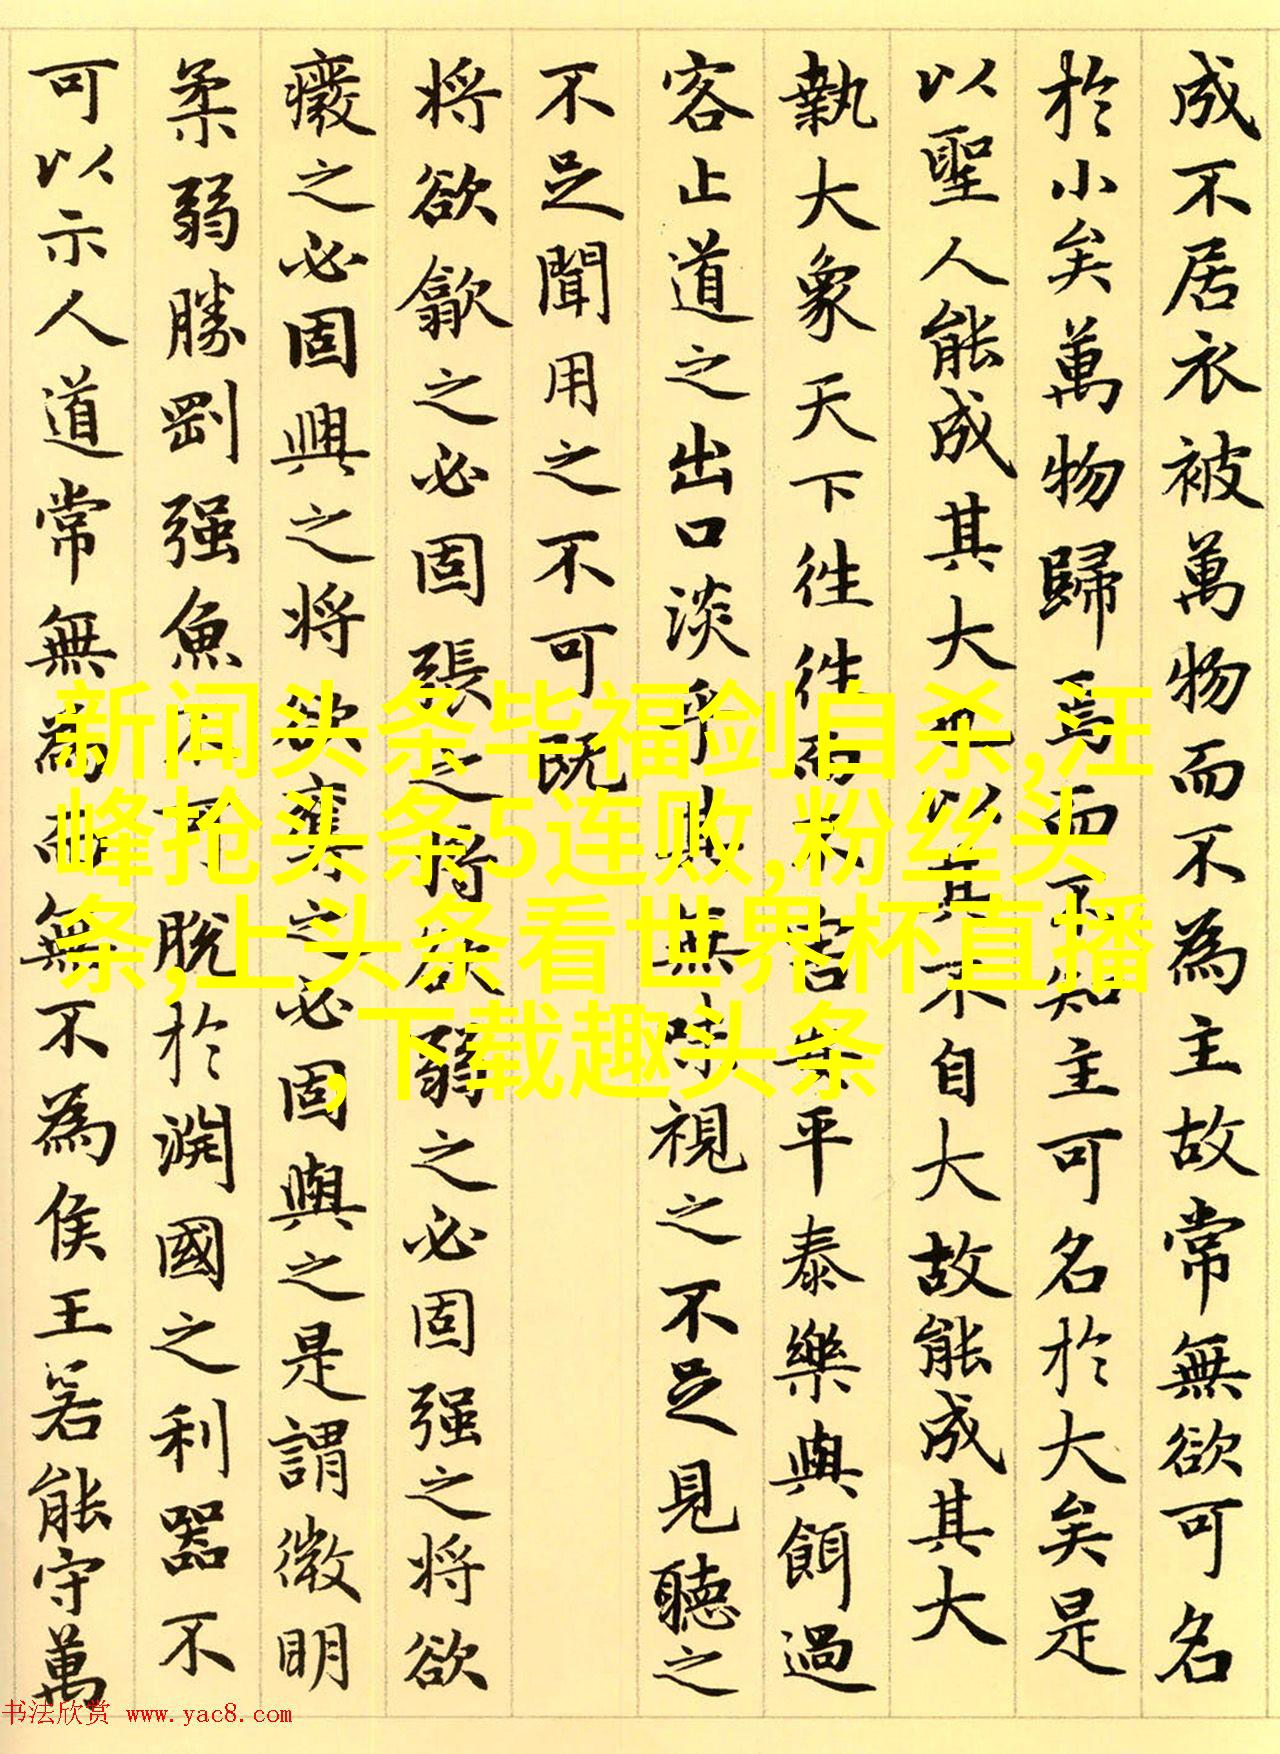 成不居衣被萬物而不為主故常無欲可名
於小矣萬物歸焉而不知主可名於大矣是
以聖人能成其大也以其不自大故能成其大
執大象天下往往而不害安平泰樂與餌過
客止道之出口淡乎其無味視之不足見聽之
不足聞用之不可既
将欲歙之必固張之将欲弱之必固强之将欲
癈之必固興之将欲奪之必固與之是謂微明
柔弱勝剛强魚不可脫於淵國之利器不
可以示人道常無為而無不為侯王若能守萬
新闻头条毕福剑自杀,汪
峰抢头条5连败,粉丝头
条,上头条看世界杯直播
,下载趣头条
书法欣赏 www.yac8.com